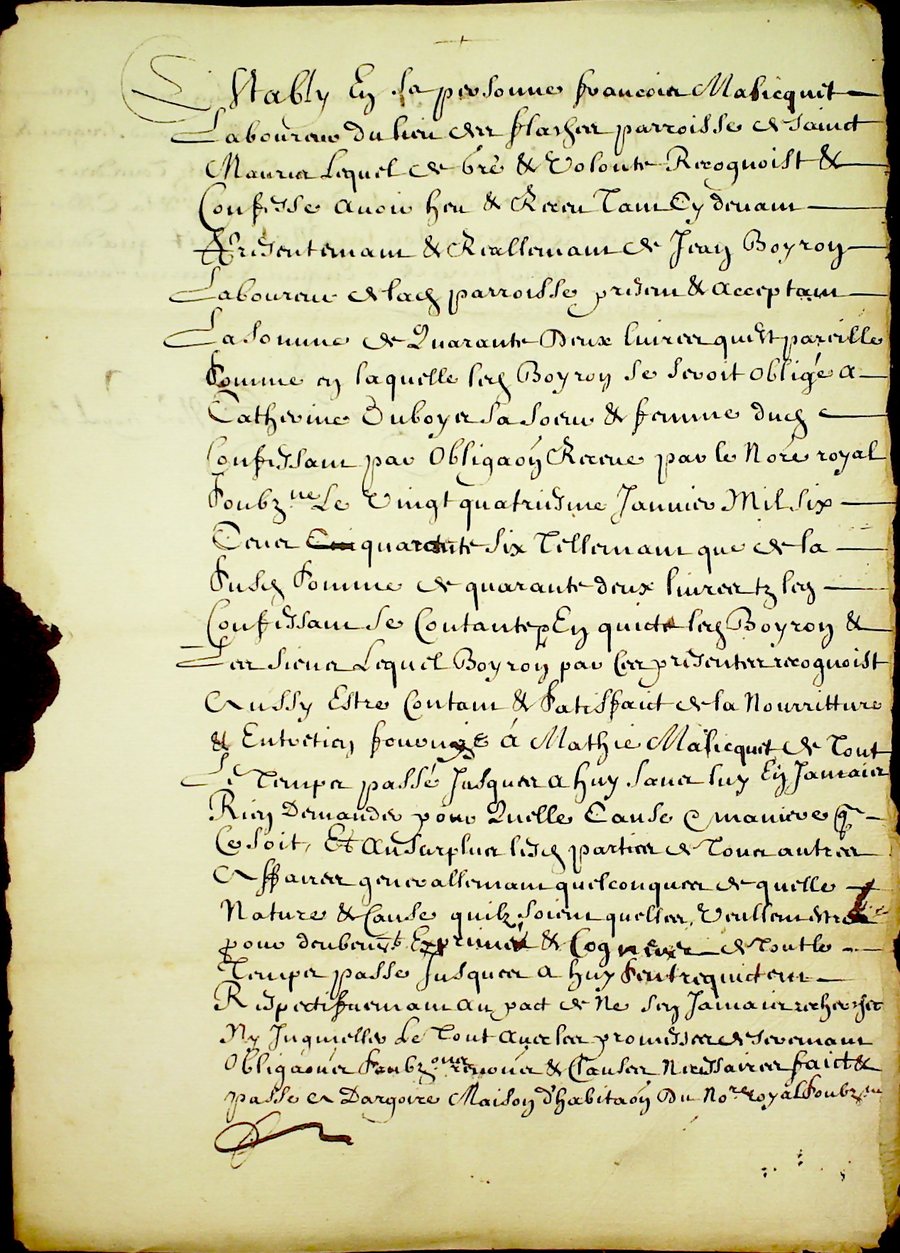 Estably En sa personne francois Masicquet
Laboureur du lieu des flaches parroisse de sainct
Maurice Lequel de gre & Volonte Recognoist &
Confesse avoir heu & Receu Tant Cy devant
Presentemant & Reallemant de Jean Boyron
Laboureur de lad parroisse present & acceptant
La somme de Quarante Deux livres quest pareille
somme en laquelle led Boyron se seroit obligé a
Catherine Duboyer sa soeur & femme dud
Confessant par Obligaon Receue par le Nore royal
soubzne Le Vingt quatriesme Janvier Mil six
Cens quarante six Tellemant que de la
susd somme de quarante deux livres tz led
Confessant se Contante En quicte led Boyron &
Les siens Lequel Boyron par ces presentes recognoist
Aussy Estre Contant & satisfaict de la Nourritture
& Entretien fournye á Mathie Masicquet de Tout
Le Temps passé Jusques a huy sans luy En Jamais
Rien Demander pour Quelle Cause & maniere q
Ce soit, Et au surplus lesd parties de Tous autres
Affaires generallemant quelconques de quelle
Nature & Cause quilz soient quelles Veullent estre
pour deubem Exprimés & Cogneues de Tout le
Temps passe Jusques a huy sentrequictent
Respectifvemant au pact de Ne sen Jamais rechercher
Ny Inquieter Le Tout avec les promesses de seremant
Obligaons soubzons renons & Clauses Necessaires faict &
passe A Dargoire Maison dhabitaon Du Nore royal soubzne